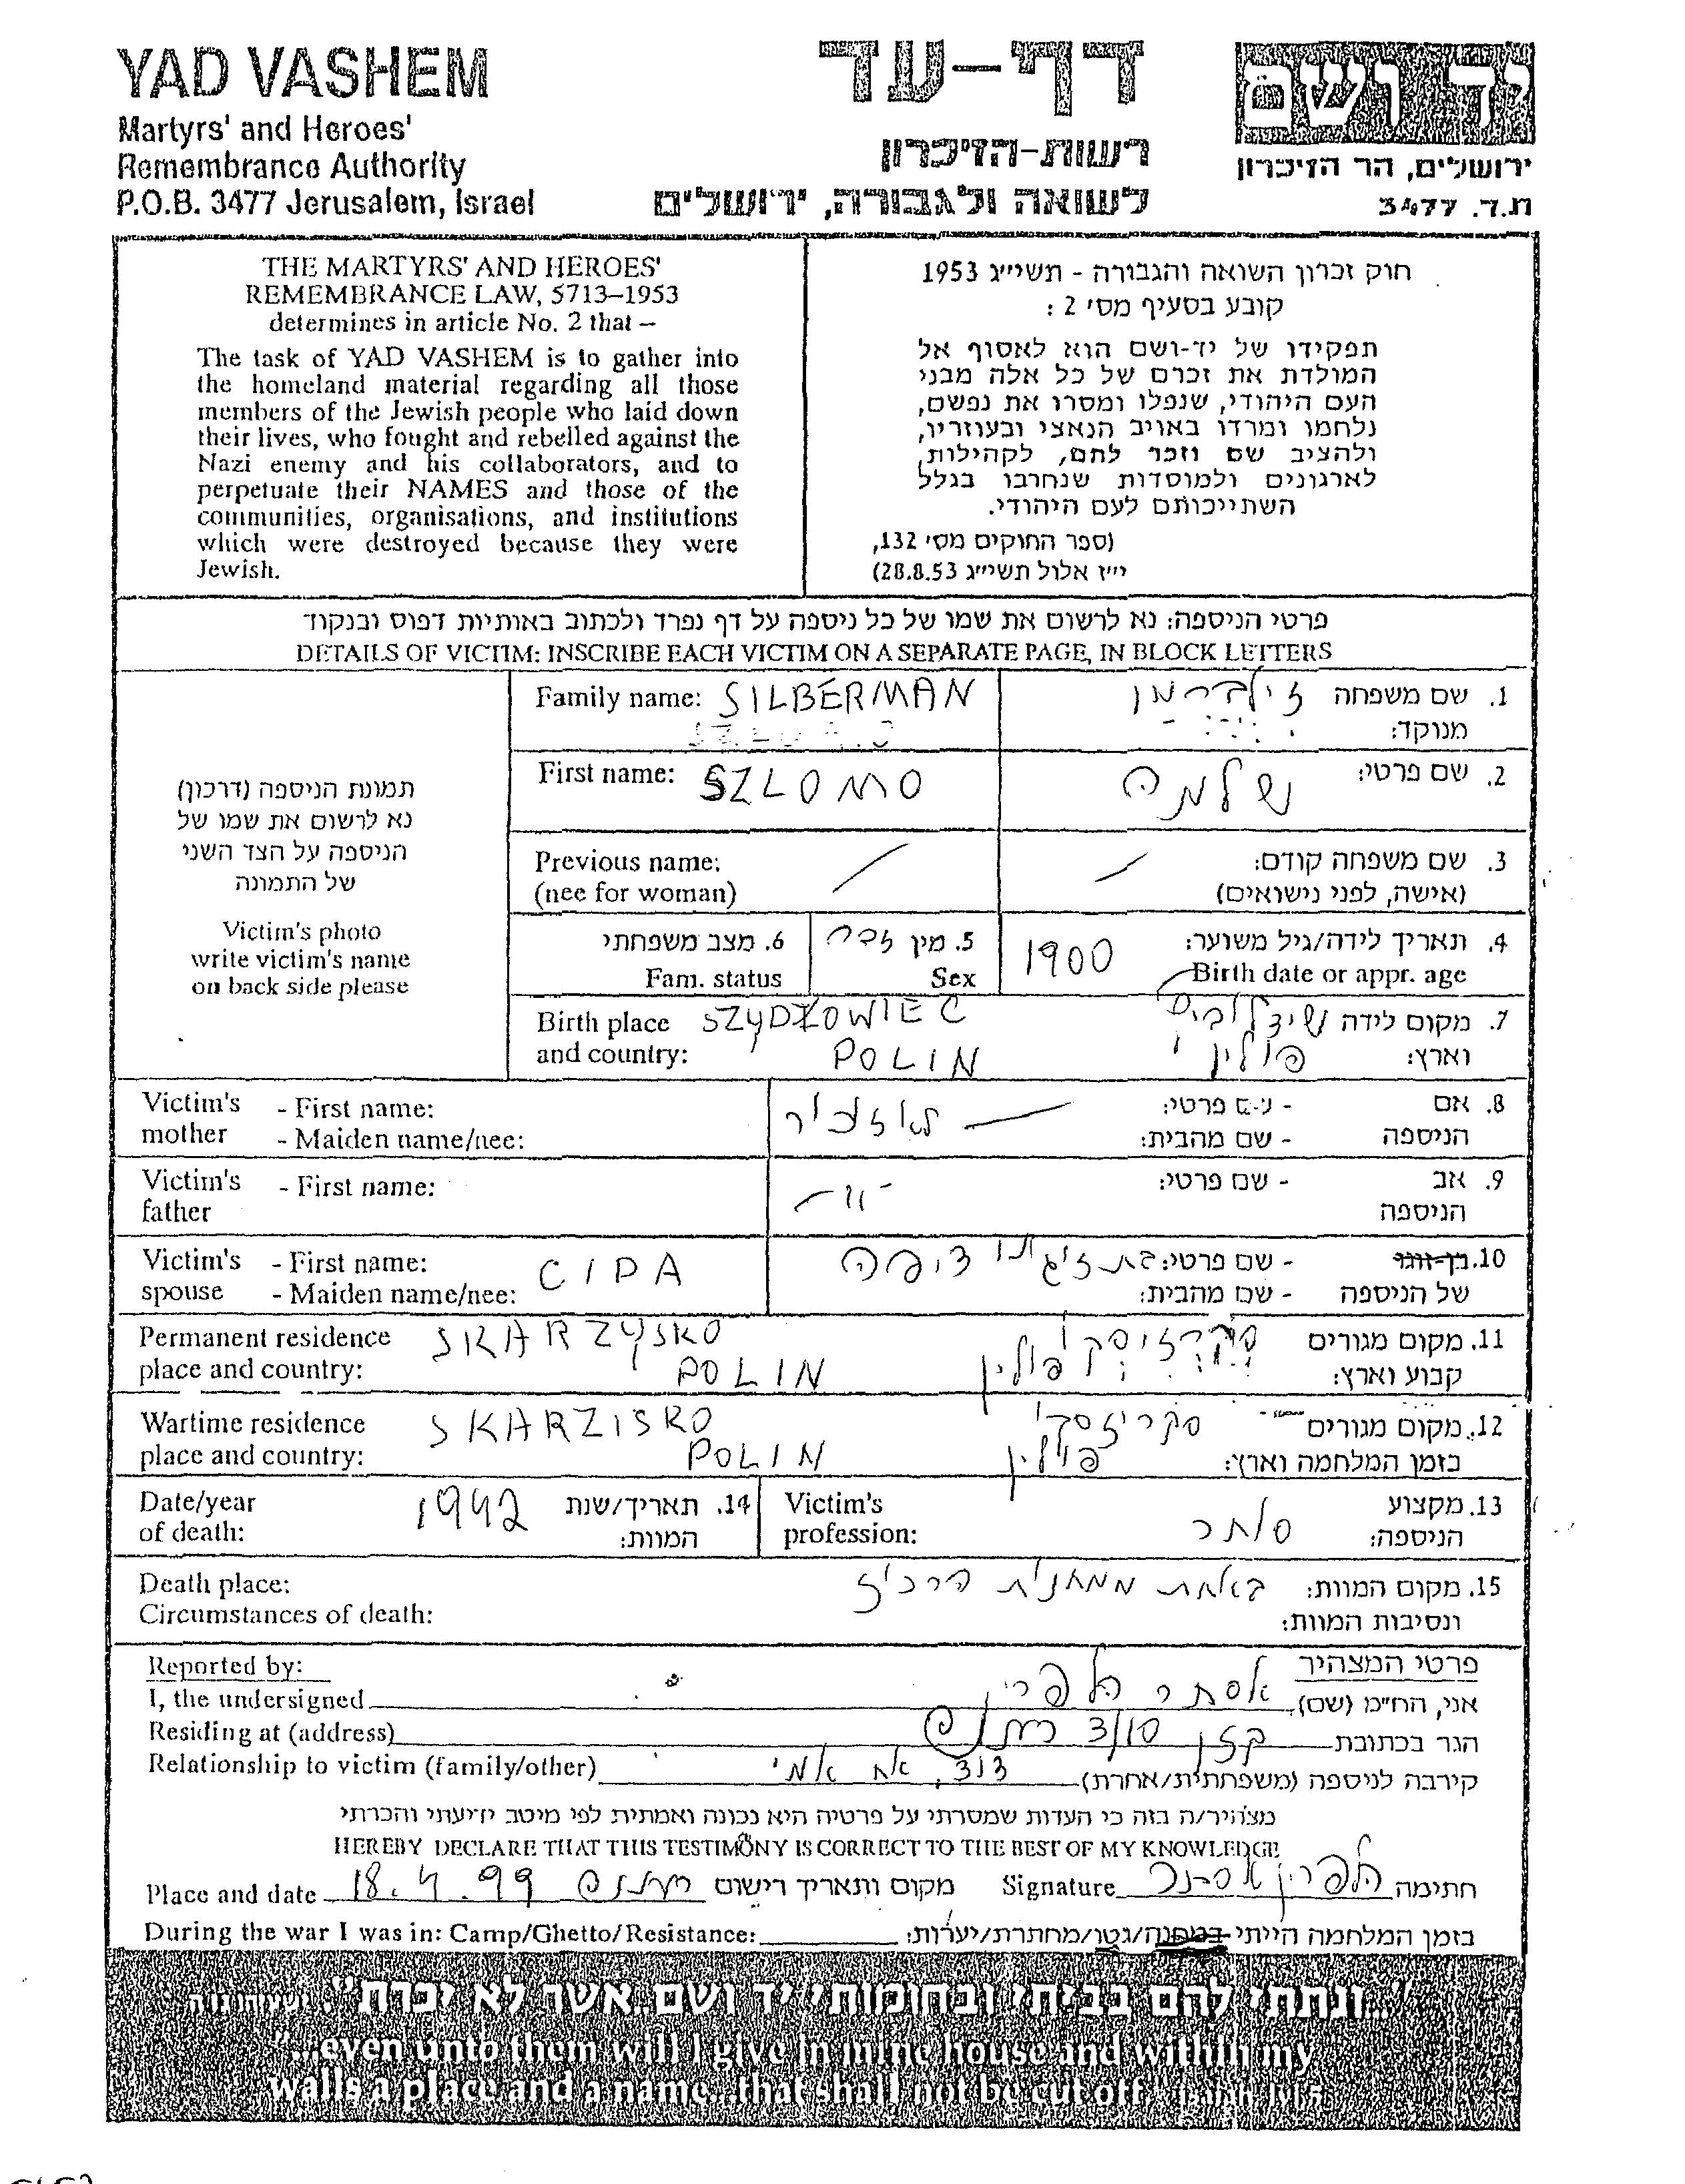 YAD VASHEM
Martyrs' and Heroes'
Remembrance Authority
P.O.B. 3477 Jerusalem, Israel
דף-עד
רשות-הזיכרון
לשואה ולגבורה, ירושלים
יד ושם
ירושלים, הר הזיכרון
ת.ד. 3477
THE MARTYRS' AND HEROES'
REMEMBRANCE LAW, 5713–1953
determines in article No. 2 that –
The task of YAD VASHEM is to gather into
the homeland material regarding all those
members of the Jewish people who laid down
their lives, who fought and rebelled against the
Nazi enemy and his collaborators, and to
perpetuate their NAMES and those of the
communities, organisations, and institutions
which were destroyed because they were
Jewish.
חוק זכרון השואה והגבורה - תשי״ג 1953
קובע בסעיף מס׳ 2 :
תפקידו של יד-ושם הוא לאסוף אל
המולדת את זכרם של כל אלה מבני
העם היהודי, שנפלו ומסרו את נפשם,
נלחמו ומרדו באויב הנאצי ובעוזריו,
ולהציב שם וזכר להם, לקהילות,
לארגונים ולמוסדות שנחרבו בגלל
השתייכותם לעם היהודי.
(ספר החוקים מס׳ 132,
י״ז אלול תשי״ג 28.8.53)
פרטי הניספה: נא לרשום את שמו של כל ניספה על דף נפרד ולכתוב באותיות דפוס ובנקוד
DETAILS OF VICTIM: INSCRIBE EACH VICTIM ON A SEPARATE PAGE, IN BLOCK LETTERS
תמונת הניספה (דרכון)
נא לרשום את שמו של
הניספה על הצד השני
של התמונה
Victim's photo
write victim's name
on back side please
Family name: SILBERMAN
1. שם משפחה זילברמן
מנוקד:
First name: SZLOMO
2. שם פרטי: שלמה
Previous name: /
(nee for woman)
3. שם משפחה קודם: /
(אישה, לפני נישואים)
6. מצב משפחתי
Fam. status
5. מין זכר
Sex
4. תאריך לידה/גיל משוער: 1900
Birth date or appr. age
Birth place SZYDŁOWIEC
and country: POLIN
7. מקום לידה שידלוביץ
וארץ: פולין
Victim's - First name:
mother - Maiden name/nee:
8. אם - שם פרטי:
הניספה - שם מהבית: לא זכור
Victim's - First name:
father
9. אב - שם פרטי: -״-
הניספה
Victim's - First name: CIPA
spouse - Maiden name/nee:
10. בן-זוגו - שם פרטי: בת זוגתו ציפה
של הניספה - שם מהבית:
Permanent residence SKARZYSKO
place and country: POLIN
11. מקום מגורים סקרזיסקו
קבוע וארץ: פולין
Wartime residence SKARZISKO
place and country: POLIN
12. מקום מגורים סקרזיסקו
בזמן המלחמה וארץ: פולין
Date/year 1942
of death:
14. תאריך/שנת
המוות:
Victim's
profession:
13. מקצוע סוחר
הניספה:
Death place:
Circumstances of death:
15. מקום המוות: באחת ממחנות הריכוז
ונסיבות המוות:
Reported by:
פרטי המצהיר
I, the undersigned
אני, הח״מ (שם) אסתר הלפרין
Residing at (address)
הגר בכתובת קזן 3/10
Relationship to victim (family/other)
קירבה לניספה (משפחתית/אחרת) דוד, אח אמי
מצהיר/ה בזה כי העדות שמסרתי על פרטיה היא נכונה ואמתית לפי מיטב ידיעתי והכרתי
HEREBY DECLARE THAT THIS TESTIMONY IS CORRECT TO THE BEST OF MY KNOWLEDGE
Place and date 18.4.99 מקום ותאריך רישום
Signature הלפרין אסתר חתימה
During the war I was in: Camp/Ghetto/Resistance:
בזמן המלחמה הייתי במחנה/גטו/מחתרת/יערות:
"...ונתתי להם בביתי ובחומותי יד ושם...אשר לא יכרת". ישעיהו נו ה
"...even unto them will I give in mine house and within my
walls a place and a name...that shall not be cut off" Isaiah, lvi,5